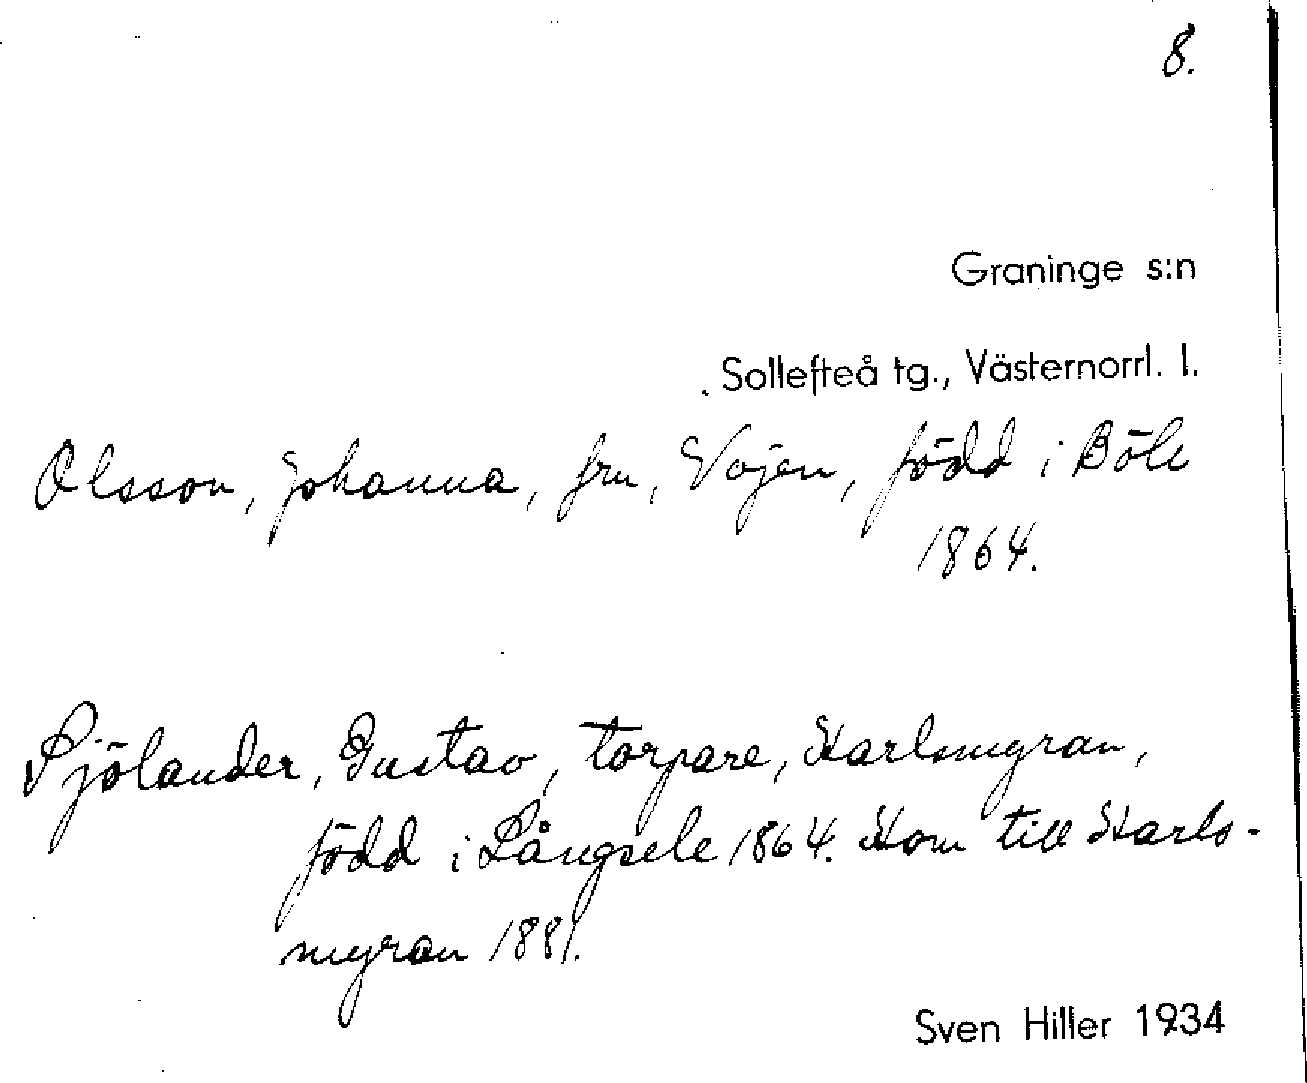 8.
Graninge s:n
Sollefteå tg., Västernorrl. l.
Olsson, Johanna, fru, Vojen, född i Böle
1864.
Sjölander, Gustav, torpare, Karlsmyran,
född i Långsele 1864. Kom till Karls-
myran 1881.
Sven Hiller 1934